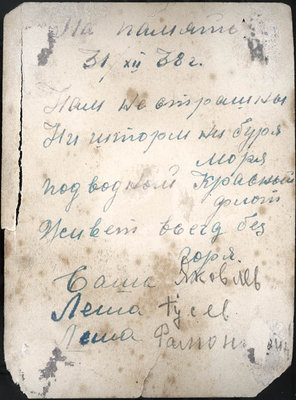 На память
31/XII 38 г.
Нам не страшны
Ни шторм ни буря
моря
подводный Красный
флот
Живет всегд без
горя.
Саша Яковлев
Леша Гусев
Леша